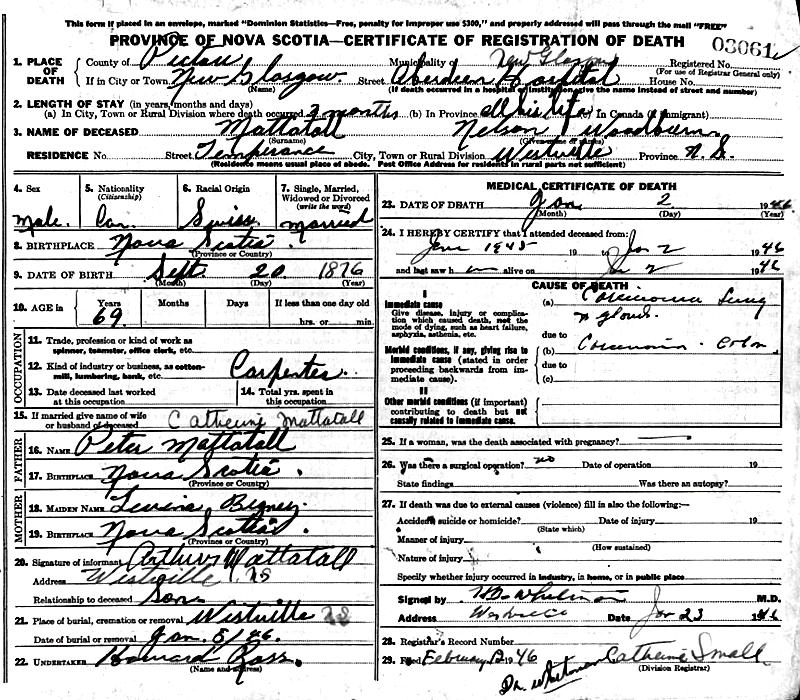 This form if placed in an envelope, marked "Dominion Statistics—Free, penalty for improper use $300," and properly addressed will pass through the mail "FREE"
PROVINCE OF NOVA SCOTIA—CERTIFICATE OF REGISTRATION OF DEATH
03061
1. PLACE OF DEATH County of Pictou Municipality of New Glasgow Registered No.
(For use of Registrar General only)
If in City or Town New Glasgow Street Aberdeen Hospital House No.
(Name) (If death occurred in a hospital or institution give the name instead of street and number)
2. LENGTH OF STAY (in years, months and days)
(a) In City, Town or Rural Division where death occurred 2 months (b) In Province all his life (c) In Canada (if immigrant)
3. NAME OF DECEASED Mattatall Nelson Woodburn
(Surname) (Given name or names)
RESIDENCE No. Street Temperance City, Town or Rural Division Westville Province N.S.
(Residence means usual place of abode. Post Office Address for residents in rural parts not sufficient)
4. Sex
Male.
5. Nationality
(Citizenship)
Can
6. Racial Origin
Swiss
7. Single, Married, Widowed or Divorced
(write the word)
Married
8. BIRTHPLACE Nova Scotia
(Province or Country)
9. DATE OF BIRTH Sept 20 1876
(Month) (Day) (Year)
10. AGE in Years Months Days If less than one day old
69 hrs. or min.
OCCUPATION
11. Trade, profession or kind of work as spinner, teamster, office clerk, etc.
12. Kind of industry or business, as cotton-mill, lumbering, bank, etc. Carpenter.
13. Date deceased last worked at this occupation
14. Total yrs. spent in this occupation
15. If married give name of wife or husband of deceased Catherine Mattatall
FATHER
16. NAME Peter Mattatall
17. BIRTHPLACE Nova Scotia.
(Province or Country)
MOTHER
18. MAIDEN NAME Levina Bigney
19. BIRTHPLACE Nova Scotia.
(Province or Country)
20. Signature of informant Arthur Mattatall
Address Westville NS
Relationship to deceased Son
21. Place of burial, cremation or removal Westville NS
Date of burial or removal Jan. 5/46.
22. UNDERTAKER Howard Ross.
(Name and address)
MEDICAL CERTIFICATE OF DEATH
23. DATE OF DEATH Jan 2 1946
(Month) (Day) (Year)
24. I HEREBY CERTIFY that I attended deceased from:
1945 19 to Jan 2 1946
and last saw h im alive on Jan 2 1946
CAUSE OF DEATH
I
Immediate cause
Give disease, injury or complication which caused death, not the mode of dying, such as heart failure, asphyxia, asthenia, etc.
(a) Carcinoma Lung
& glands.
due to
Morbid conditions, if any, giving rise to immediate cause (stated in order proceeding backwards from immediate cause)
(b) Carcinoma - Colon
due to
(c)
II
Other morbid conditions (if important) contributing to death but not causally related to immediate cause.
25. If a woman, was the death associated with pregnancy?
26. Was there a surgical operation? no Date of operation 19
State findings Was there an autopsy?
27. If death was due to external causes (violence) fill in also the following:—
Accident, suicide or homicide? Date of injury 19
(State which)
Manner of injury
(How sustained)
Nature of injury
Specify whether injury occurred in industry, in home, or in public place
Signed by Whitman M.D.
Address Westville Date Jan 23 1946
28. Registrar's Record Number
29. Filed February 12 1946 Catherine Small
(Division Registrar)
Dr. Whitman